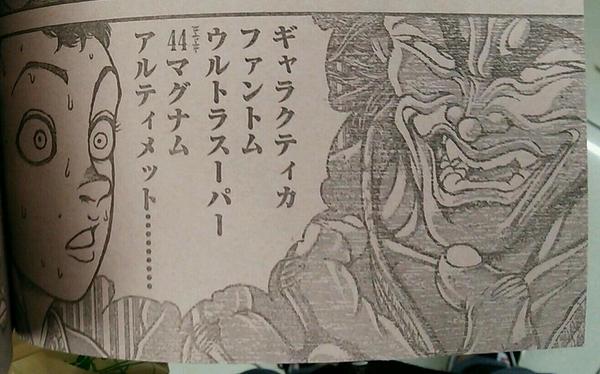 ギャラクティカ
ファントム
ウルトラスーパー
44マグナム
アルティメット…………